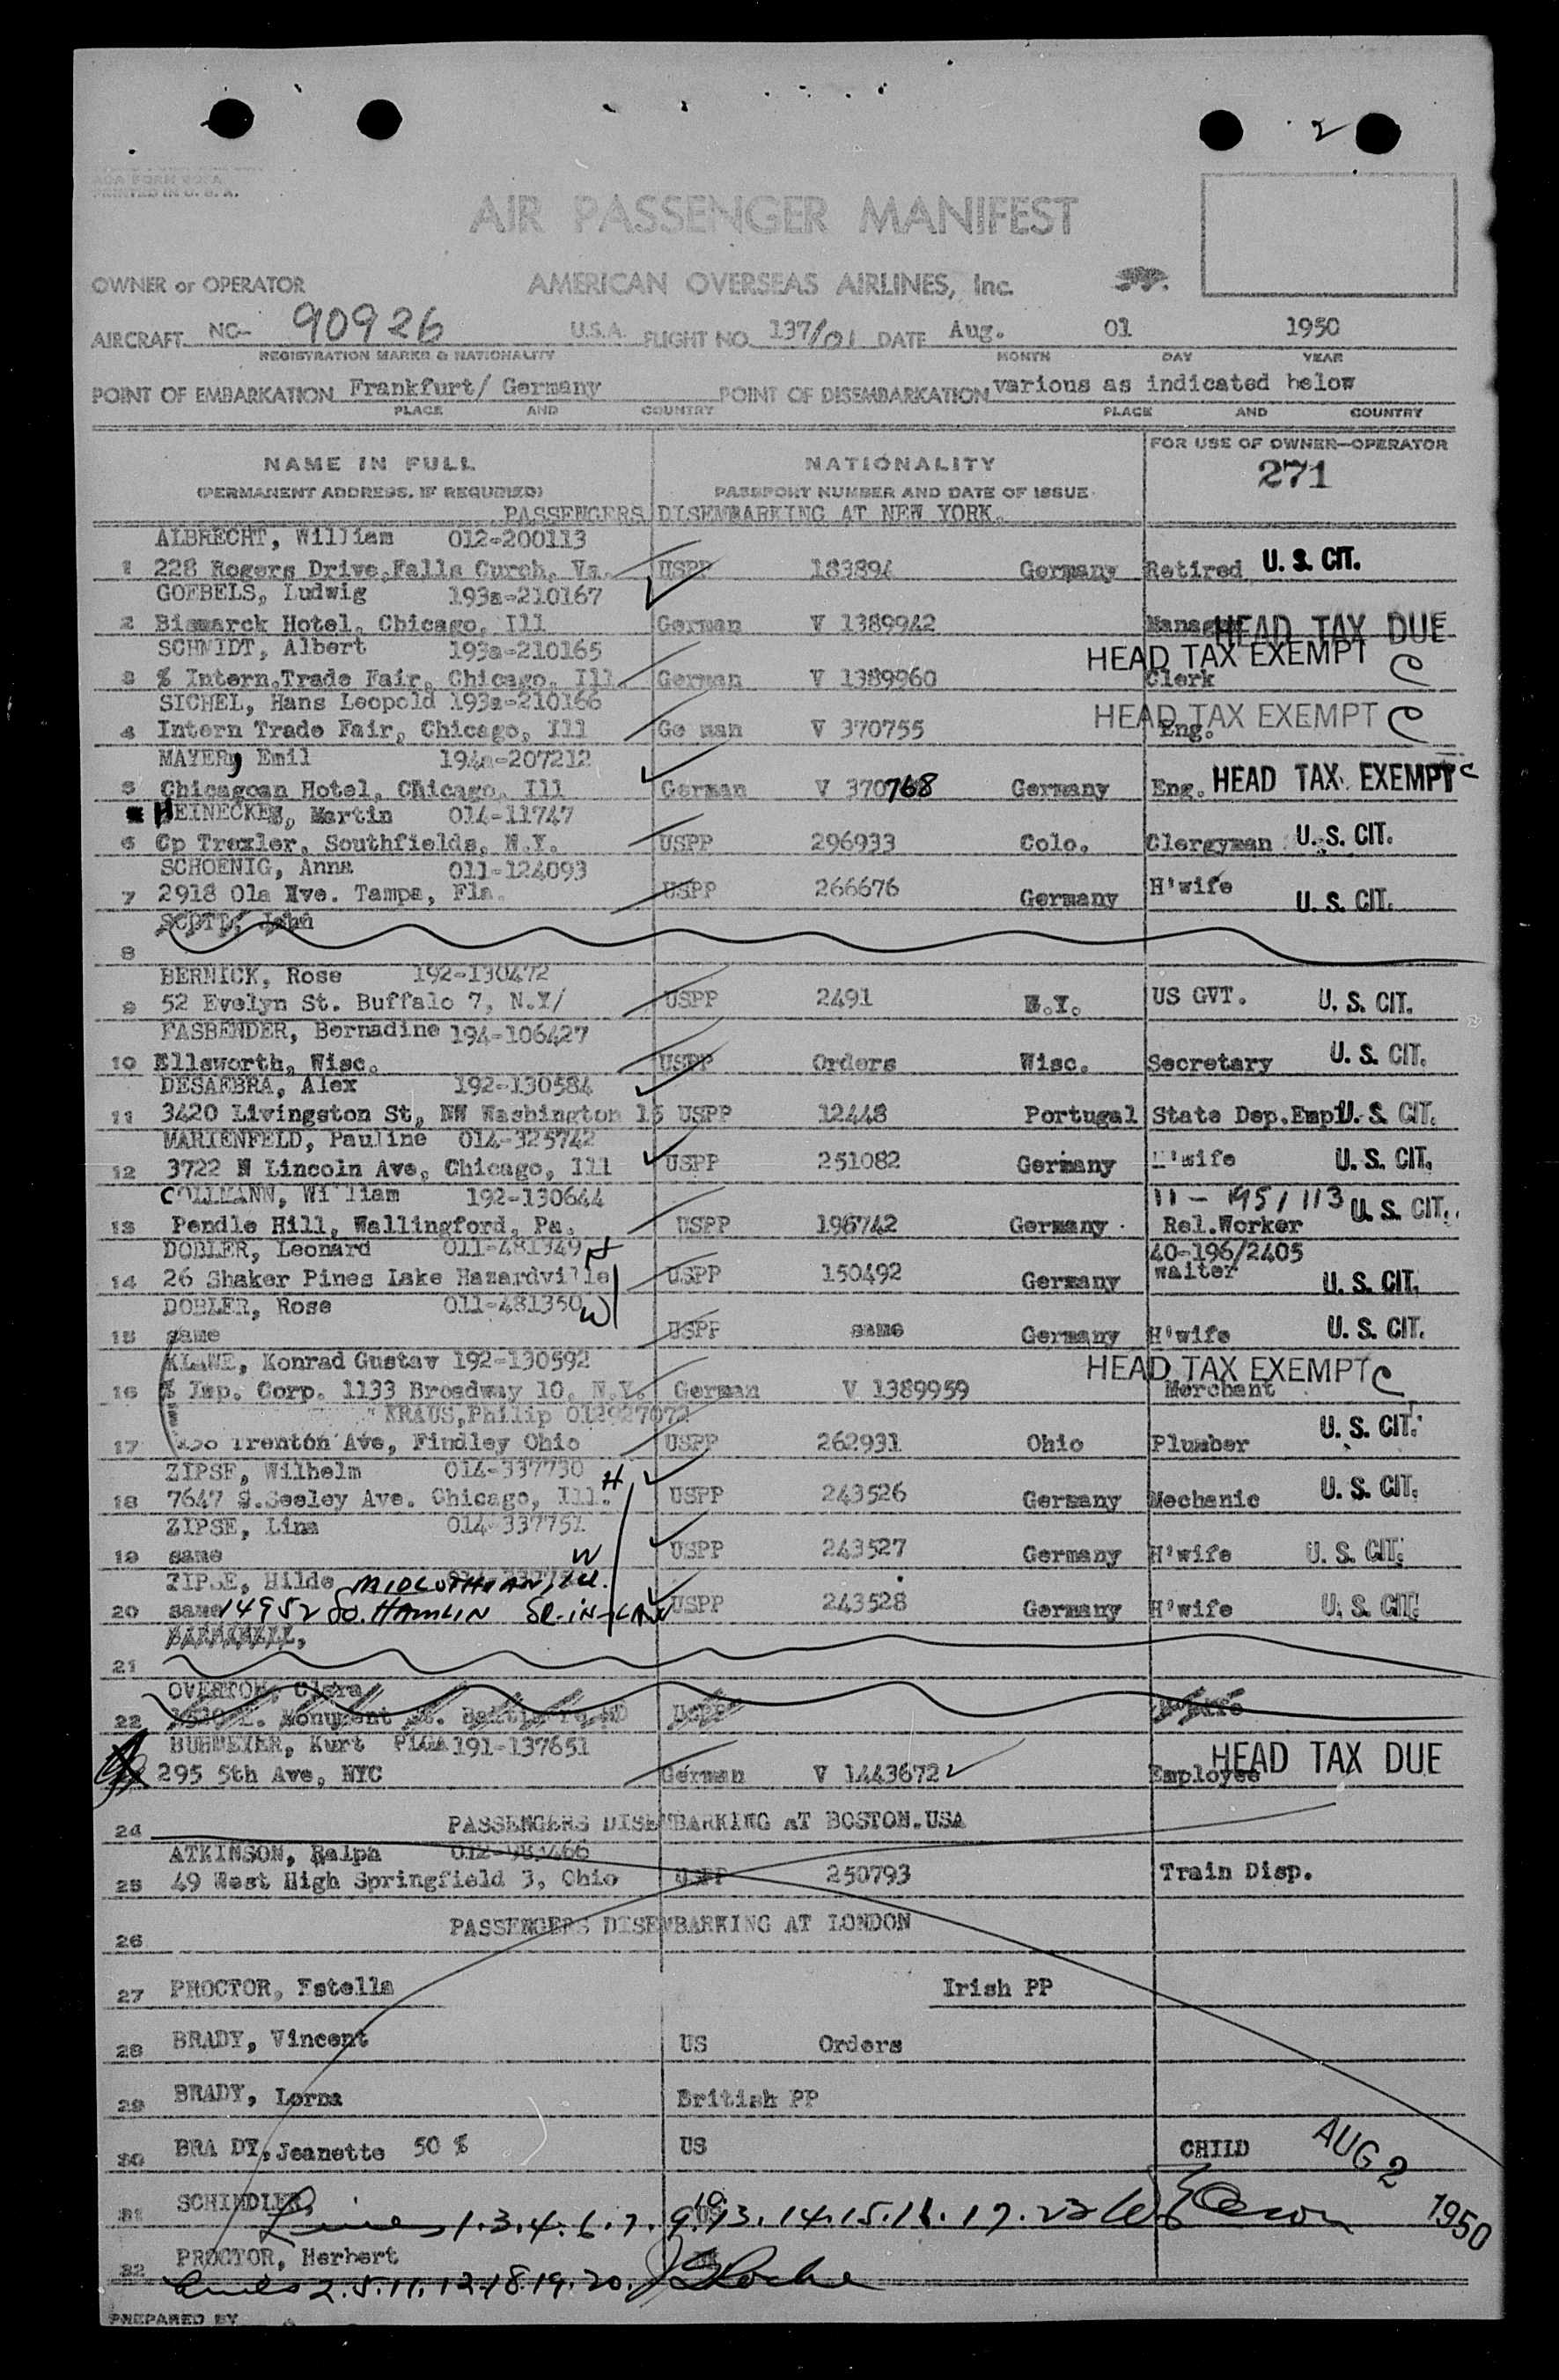 2
AOA FORM
PRINTED IN U. S. A.
AIR PASSENGER MANIFEST
OWNER or OPERATOR AMERICAN OVERSEAS AIRLINES, Inc.
AIRCRAFT NC- 90926 U.S.A. FLIGHT NO. 137/01 DATE Aug. 01 1950
REGISTRATION MARKS & NATIONALITY MONTH DAY YEAR
POINT OF EMBARKATION Frankfurt/ Germany POINT OF DISEMBARKATION various as indicated below
PLACE AND COUNTRY PLACE AND COUNTRY
NAME IN FULL NATIONALITY FOR USE OF OWNER—OPERATOR
(PERMANENT ADDRESS, IF REQUIRED) PASSPORT NUMBER AND DATE OF ISSUE 271
PASSENGERS DISEMBARKING AT NEW YORK.
ALBRECHT, William 012-200113
1 228 Rogers Drive, Falls Curch, Va. USPP 183894 Germany Retired U. S. CIT.
GOEBELS, Ludwig 193a-210167
2 Bismarck Hotel, Chicago, Ill German V 1389942 Manager HEAD TAX DUE
SCHMIDT, Albert 193a-210165 HEAD TAX EXEMPT C
3 % Intern.Trade Fair, Chicago, Ill. German V 1389960 Clerk
SICHEL, Hans Leopold 193a-210166 HEAD TAX EXEMPT C
4 Intern Trade Fair, Chicago, Ill Ge man V 370755 Eng.
MAYER, Emil 194a-207212
5 Chicagoan Hotel, Chicago, Ill German V 370768 Germany Eng. HEAD TAX EXEMPT C
HEINECKEN, Martin 014-11747
6 Cp Trexler, Southfields, N.Y. USPP 296933 Colo. Clergyman U. S. CIT.
SCHOENIG, Anna 011-124093
7 2918 Ola Ave. Tampa, Fla. USPP 266676 Germany H'wife U. S. CIT.
8
BERNICK, Rose 192-130472
9 52 Evelyn St. Buffalo 7, N.Y/ USPP 2491 N.Y. US GVT. U. S. CIT.
FASBENDER, Bernadine 194-106427
10 Ellsworth, Wisc. USPP Orders Wisc. Secretary U. S. CIT.
DESAEBRA, Alex 192-130584
11 3420 Livingston St, NW Washington 15 USPP 12448 Portugal State Dep.Empl U. S. CIT.
MARIENFELD, Pauline 014-325742
12 3722 N Lincoln Ave, Chicago, Ill USPP 251082 Germany H'wife U. S. CIT.
COLLMANN, William 192-130644 11 - 195/113 U. S. CIT.
13 Pendle Hill, Wallingford, Pa. USPP 196742 Germany Rel.Worker
DOBLER, Leonard 011-481349 H 40-196/2405
14 26 Shaker Pines Lake Hazardville USPP 150492 Germany waiter U. S. CIT.
DOBLER, Rose 011-481350 W
15 same USPP same Germany H'wife U. S. CIT.
Konrad Gustav 192-130592 HEAD TAX EXEMPT C
16 % Imp. Corp. 1133 Broadway 10, N.Y. German V 1389959 Merchant
KRAUS, Philip 012927072
17 Trenton Ave, Findley Ohio USPP 262931 Ohio Plumber U. S. CIT.
ZIPSE, Wilhelm 014-337730 H
18 7647 S.Seeley Ave. Chicago, Ill. USPP 243526 Germany Mechanic U. S. CIT.
ZIPSE, Lina 014-337751
19 same W USPP 243527 Germany H'wife U. S. CIT.
ZIPSE, Hilde MIDLOTHIAN, ILL.
20 same 14952 So. HAMLIN SR-IN-LAW USPP 243528 Germany H'wife U. S. CIT.
21
OVERTON, Clara
22 Monument St. USPP H'wife
BUHMEYER, Kurt PLGA 191-137651
295 5th Ave, NYC German V 1443672 Employee HEAD TAX DUE
24 PASSENGERS DISEMBARKING AT BOSTON.USA
ATKINSON, Ralph 012-983466
25 49 West High Springfield 3, Ohio USPP 250793 Train Disp.
26 PASSENGERS DISEMBARKING AT LONDON
27 PROCTOR, Estella Irish PP
28 BRADY, Vincent US Orders
29 BRADY, Lorna British PP
30 BRA DY, Jeanette 50 % US CHILD AUG 2 1950
31 SCHINDLER,
Lines 1.3.4.6.7.9.10.13.14.15.16.17.23
32 PROCTOR, Herbert
Lines 2.5.11.12.18.19.20.
PREPARED BY